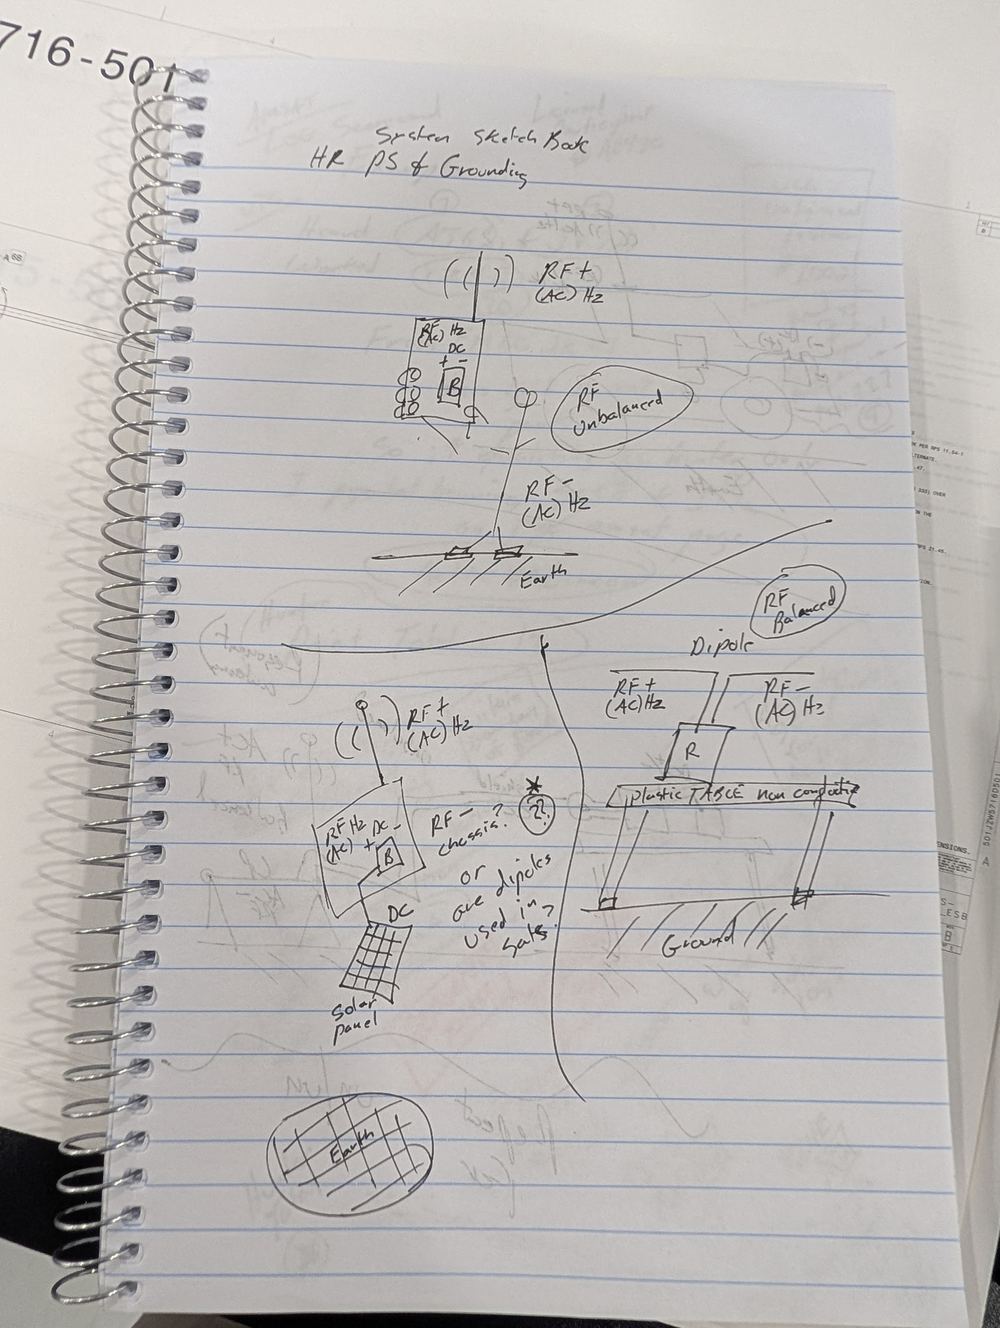 716-501
System Sketch Book
HR PS & Grounding
RF+
(AC) Hz
RF Hz
(AC)
DC
+ -
B
RF
Unbalanced
RF-
(AC) Hz
Earth
RF
Balanced
Dipole
RF+
(AC) Hz
RF-
(AC) Hz
R
plastic TABLE non conductive
Ground
RF+
(AC) Hz
RF Hz
(AC)
DC
+ -
B
RF-
chassis?
??
or
are dipoles
used in
sats?
DC
Solar
panel
Earth